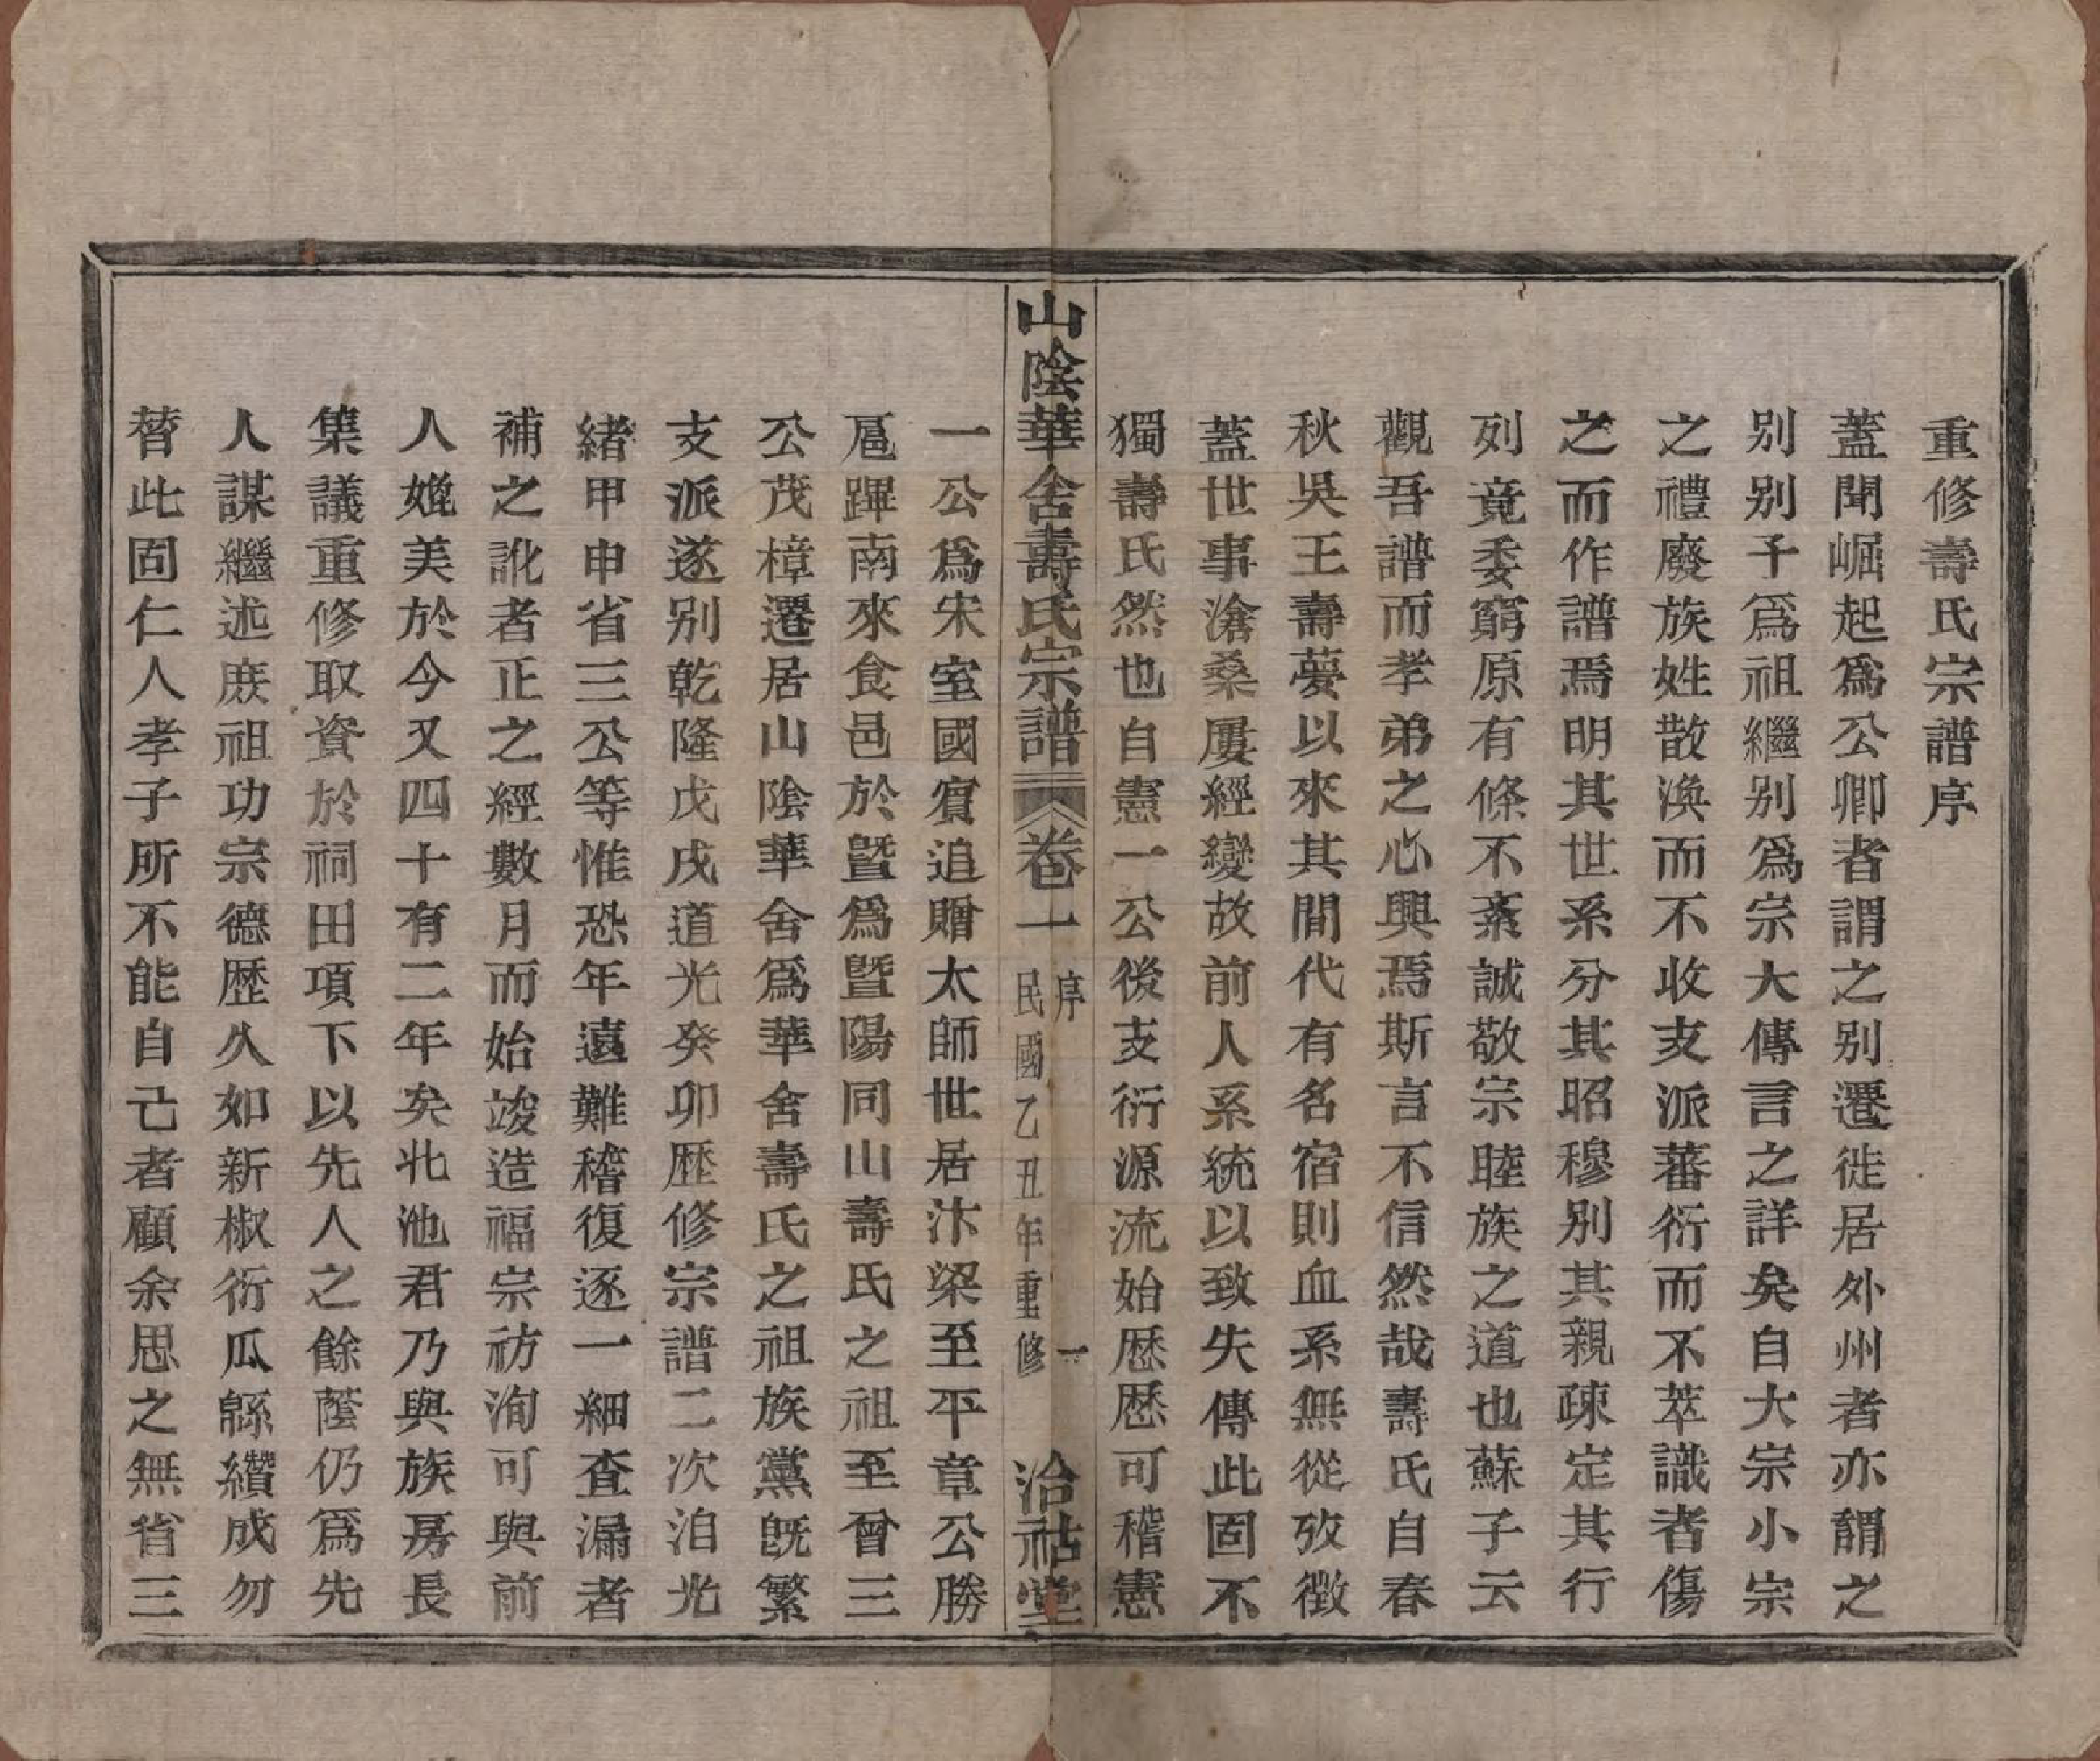 重修壽氏宗譜序
蓋聞崛起爲公卿者謂之别遷徙居外州者亦謂之
别别子爲祖繼别爲宗大傳言之詳矣自大宗小宗
之禮廢族姓散渙而不收支派蕃衍而不萃識者傷
之而作譜焉明其世系分其昭穆别其親疎定其行
列竟委窮原有條不紊誠敬宗睦族之道也蘇子云
觀吾譜而孝弟之心興焉斯言不信然哉壽氏自春
秋吳王壽夢以來其間代有名宿則血系無從攷徵
蓋世事滄桑屢經變故前人系統以致失傳此固不
獨壽氏然也自憲一公後支衍源流始歷歷可稽憲
山陰華舍壽氏宗譜 卷一 序 民國乙丑年重修 一 洽祜堂
一公爲宋室國賓追贈太師世居汴梁至平章公勝
扈蹕南來食邑於暨爲暨陽同山壽氏之祖至曾三
公茂樟遷居山陰華舍爲華舍壽氏之祖族黨旣繁
支派遂别乾隆戊戌道光癸卯歷修宗譜二次洎光
緒甲申省三公等惟恐年遠難稽復逐一細查漏者
補之訛者正之經數月而始竣造福宗祊洵可與前
人媲美於今又四十有二年矣北池君乃與族房長
集議重修取資於祠田項下以先人之餘蔭仍爲先
人謀繼述庶祖功宗德歷久如新椒衍瓜緜纘成勿
替此固仁人孝子所不能自己者顧余思之無省三